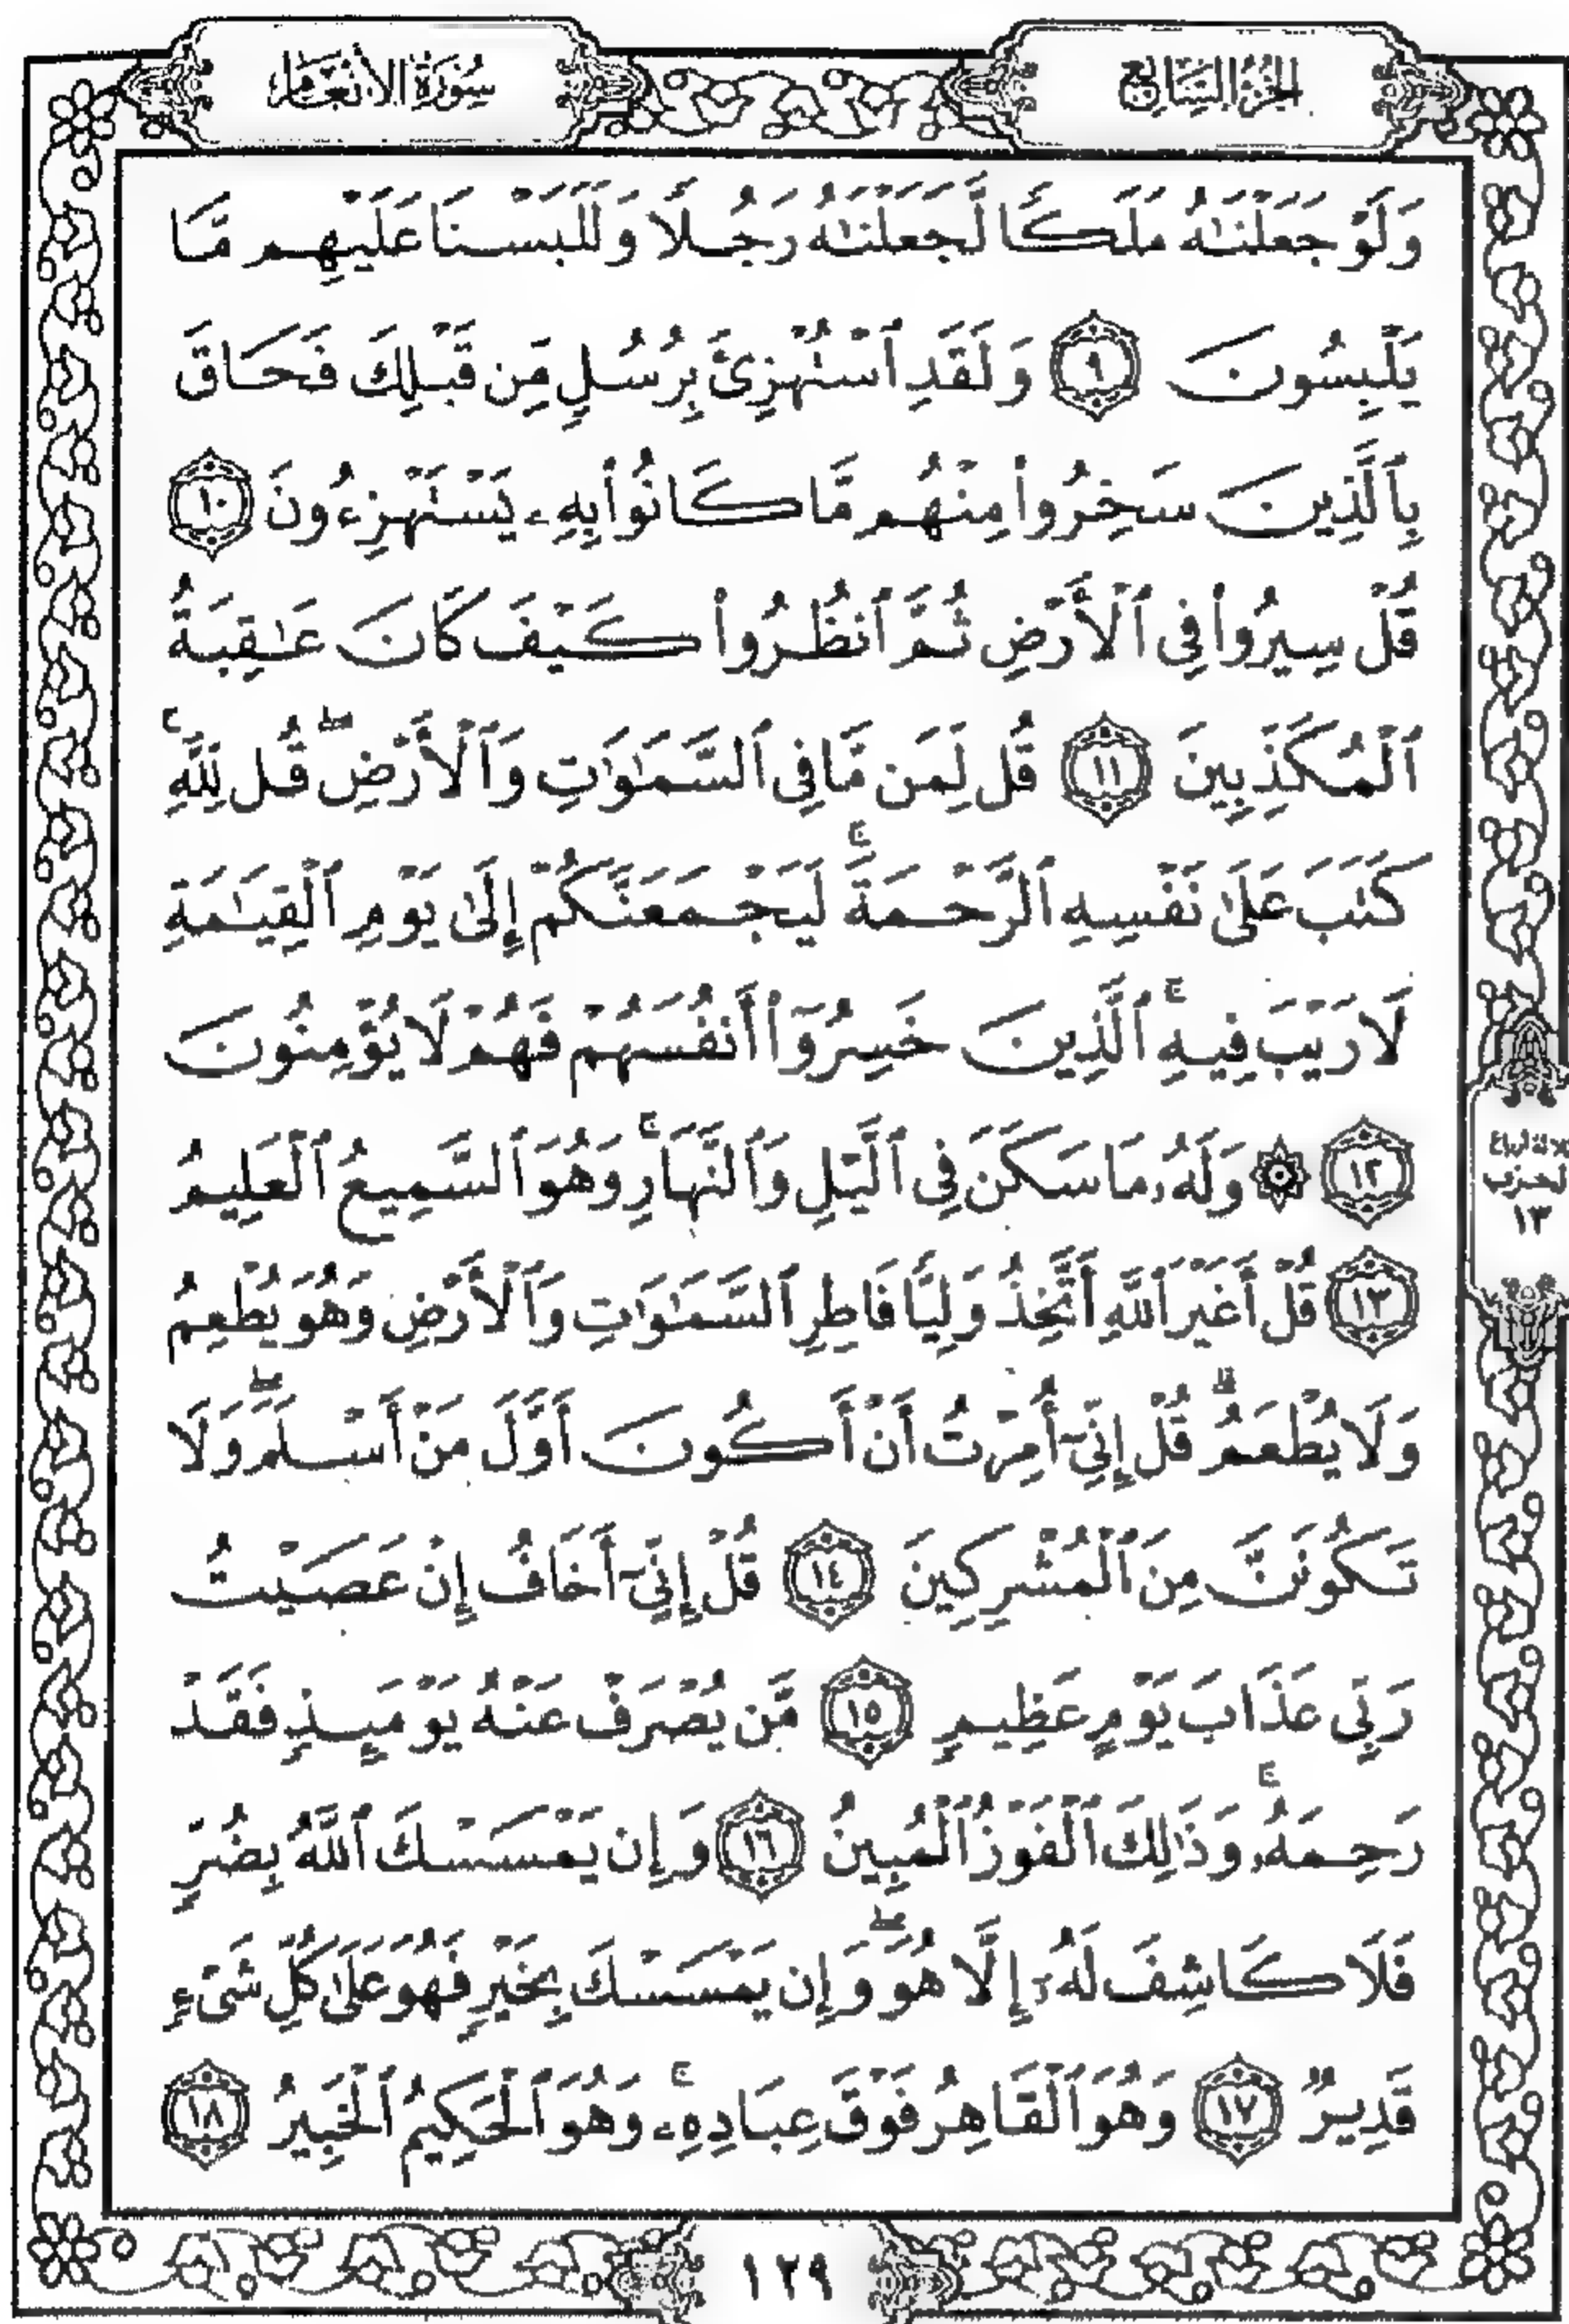 الجزء السابع
سورة الأنعام
وَلَوْ جَعَلْنَٰهُ مَلَكًا لَّجَعَلْنَٰهُ رَجُلًا وَلَلَبَسْنَا عَلَيْهِم مَّا
يَلْبِسُونَ ٩ وَلَقَدِ ٱسْتُهْزِئَ بِرُسُلٍ مِّن قَبْلِكَ فَحَاقَ
بِٱلَّذِينَ سَخِرُوا۟ مِنْهُم مَّا كَانُوا۟ بِهِۦ يَسْتَهْزِءُونَ ١٠
قُلْ سِيرُوا۟ فِى ٱلْأَرْضِ ثُمَّ ٱنظُرُوا۟ كَيْفَ كَانَ عَٰقِبَةُ
ٱلْمُكَذِّبِينَ ١١ قُل لِّمَن مَّا فِى ٱلسَّمَٰوَٰتِ وَٱلْأَرْضِ ۖ قُل لِّلَّهِ ۚ
كَتَبَ عَلَىٰ نَفْسِهِ ٱلرَّحْمَةَ ۚ لَيَجْمَعَنَّكُمْ إِلَىٰ يَوْمِ ٱلْقِيَٰمَةِ
لَا رَيْبَ فِيهِ ۚ ٱلَّذِينَ خَسِرُوٓا۟ أَنفُسَهُمْ فَهُمْ لَا يُؤْمِنُونَ
١٢ ۞ وَلَهُۥ مَا سَكَنَ فِى ٱلَّيْلِ وَٱلنَّهَارِ ۚ وَهُوَ ٱلسَّمِيعُ ٱلْعَلِيمُ
ثلاثة أرباع
الحزب
١٣
١٣ قُلْ أَغَيْرَ ٱللَّهِ أَتَّخِذُ وَلِيًّا فَاطِرِ ٱلسَّمَٰوَٰتِ وَٱلْأَرْضِ وَهُوَ يُطْعِمُ
وَلَا يُطْعَمُ ۗ قُلْ إِنِّىٓ أُمِرْتُ أَنْ أَكُونَ أَوَّلَ مَنْ أَسْلَمَ ۖ وَلَا
تَكُونَنَّ مِنَ ٱلْمُشْرِكِينَ ١٤ قُلْ إِنِّىٓ أَخَافُ إِنْ عَصَيْتُ
رَبِّى عَذَابَ يَوْمٍ عَظِيمٍ ١٥ مَّن يُصْرَفْ عَنْهُ يَوْمَئِذٍ فَقَدْ
رَحِمَهُۥ ۚ وَذَٰلِكَ ٱلْفَوْزُ ٱلْمُبِينُ ١٦ وَإِن يَمْسَسْكَ ٱللَّهُ بِضُرٍّ
فَلَا كَاشِفَ لَهُۥٓ إِلَّا هُوَ ۖ وَإِن يَمْسَسْكَ بِخَيْرٍ فَهُوَ عَلَىٰ كُلِّ شَىْءٍ
قَدِيرٌ ١٧ وَهُوَ ٱلْقَاهِرُ فَوْقَ عِبَادِهِۦ ۚ وَهُوَ ٱلْحَكِيمُ ٱلْخَبِيرُ ١٨
١٢٩